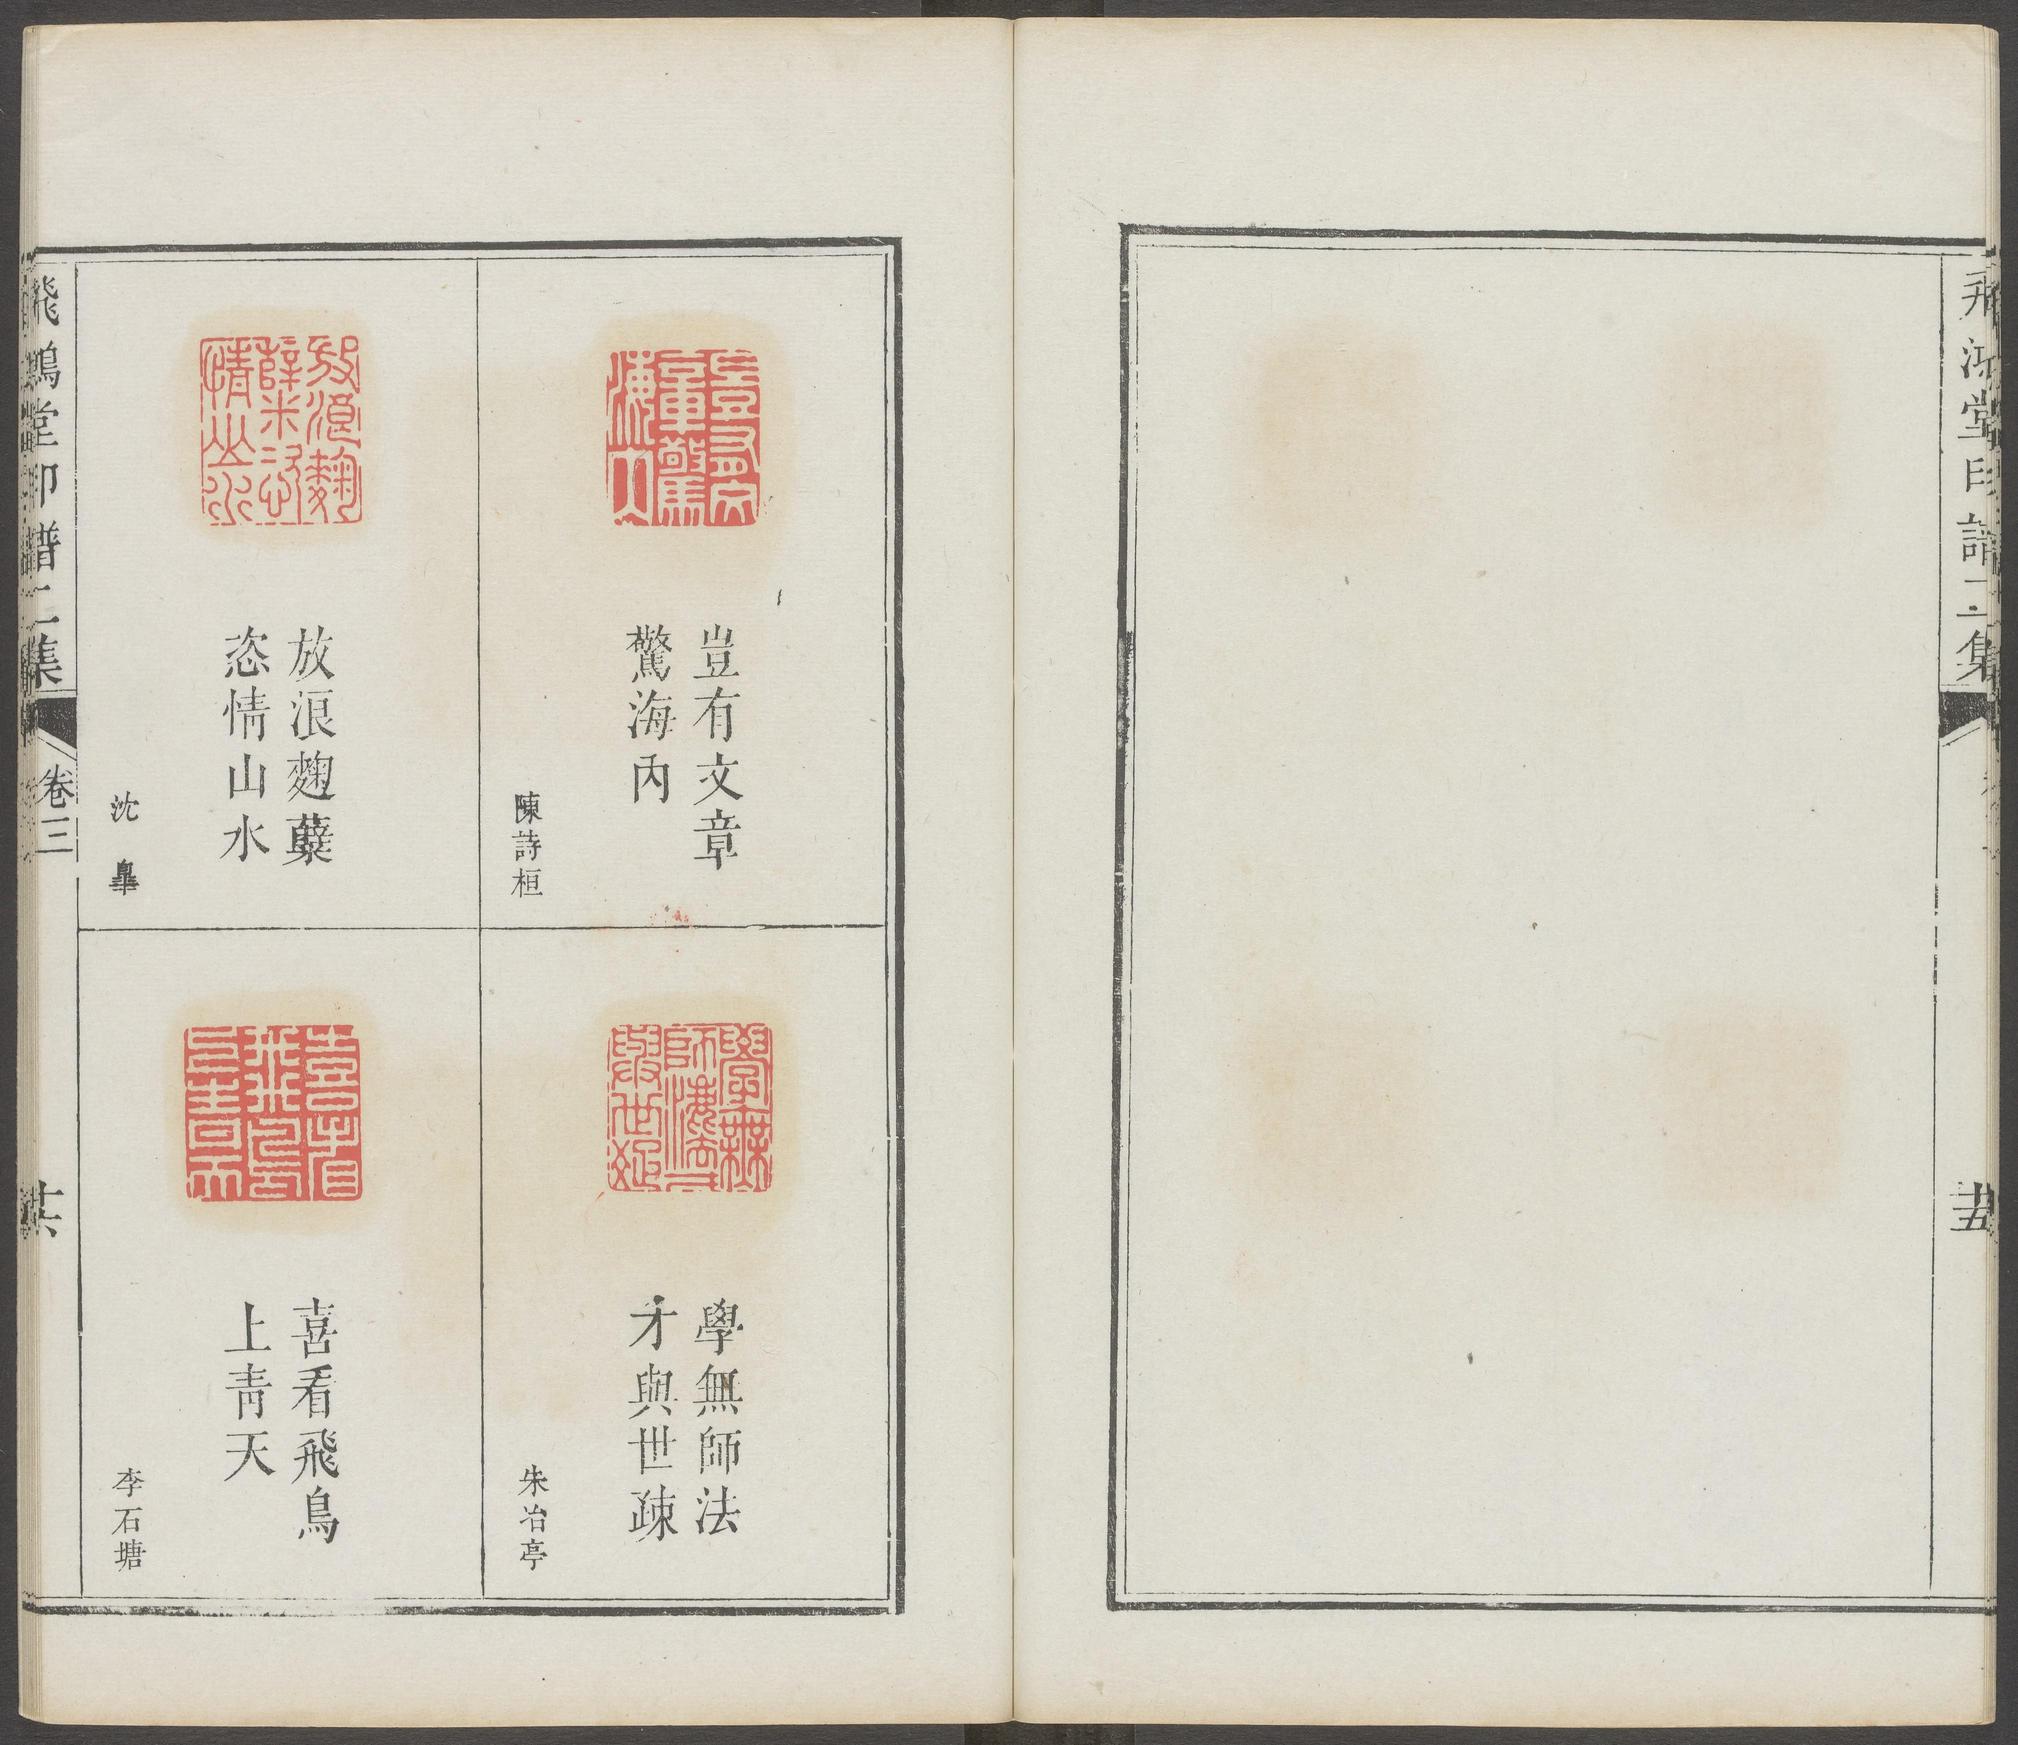 飛鴻堂印譜二集
五
豈有文章
驚海內
陳詩桓
學無師法
才與世疎
朱冶亭
放浪麴蘖
恣情山水
沈臯
喜看飛鳥
上青天
李石塘
飛鴻堂印譜二集
卷三